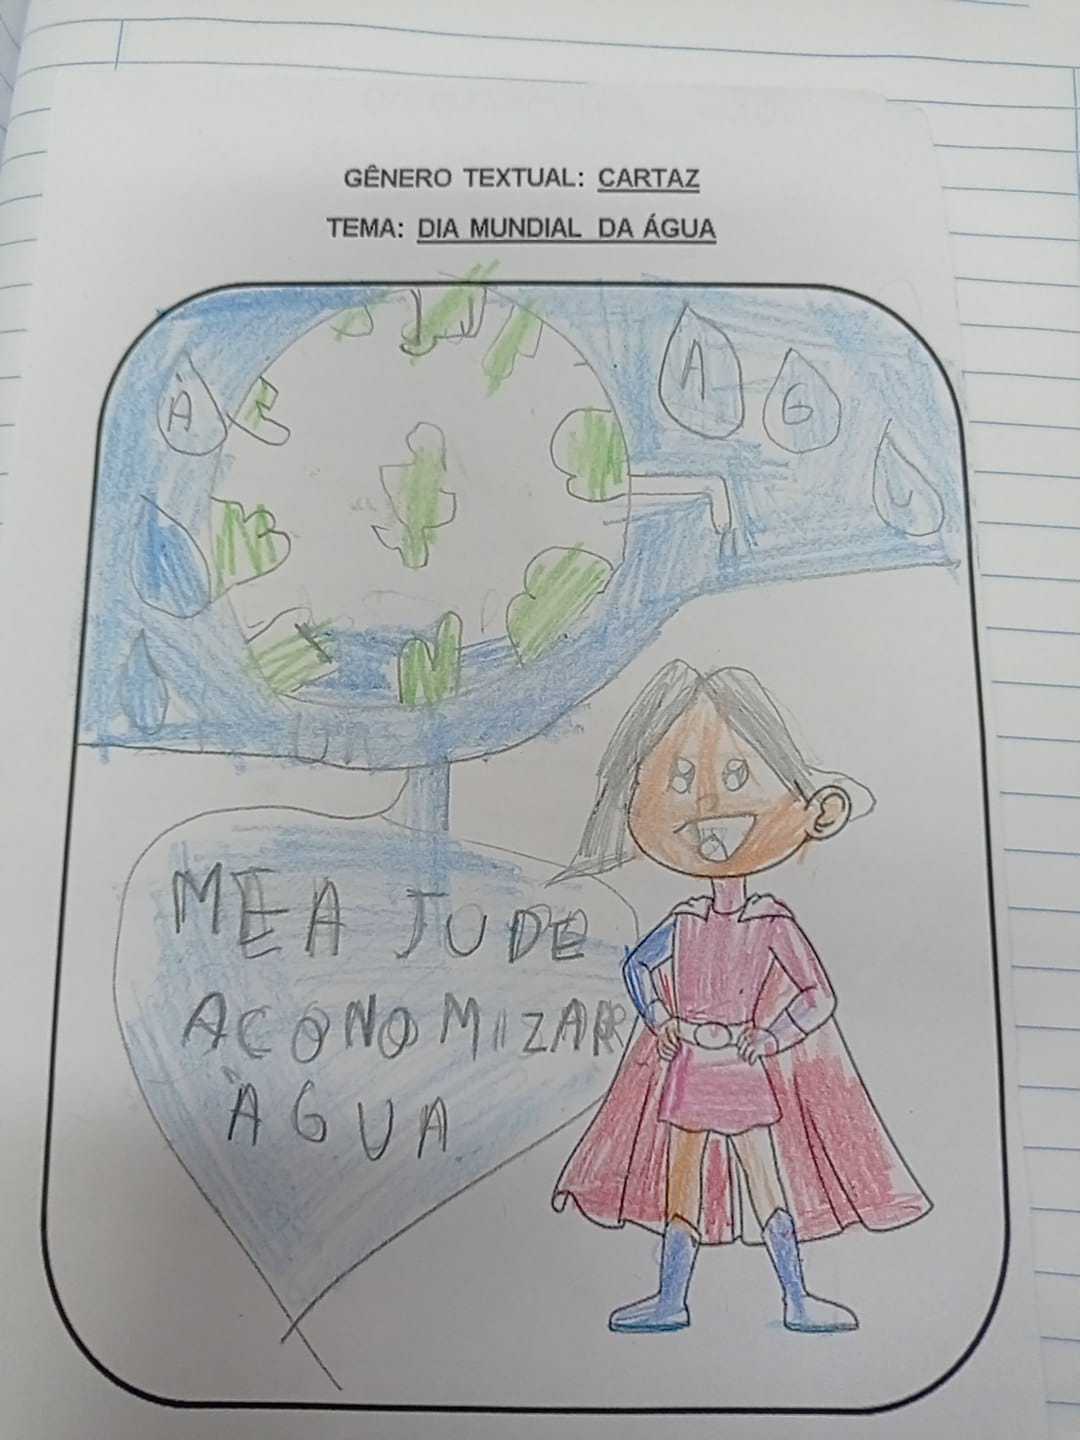 GÊNERO TEXTUAL: CARTAZ
TEMA: DIA MUNDIAL DA ÁGUA
A A G U
MEA JUDE
ACONOMIZAR
ÀGUA